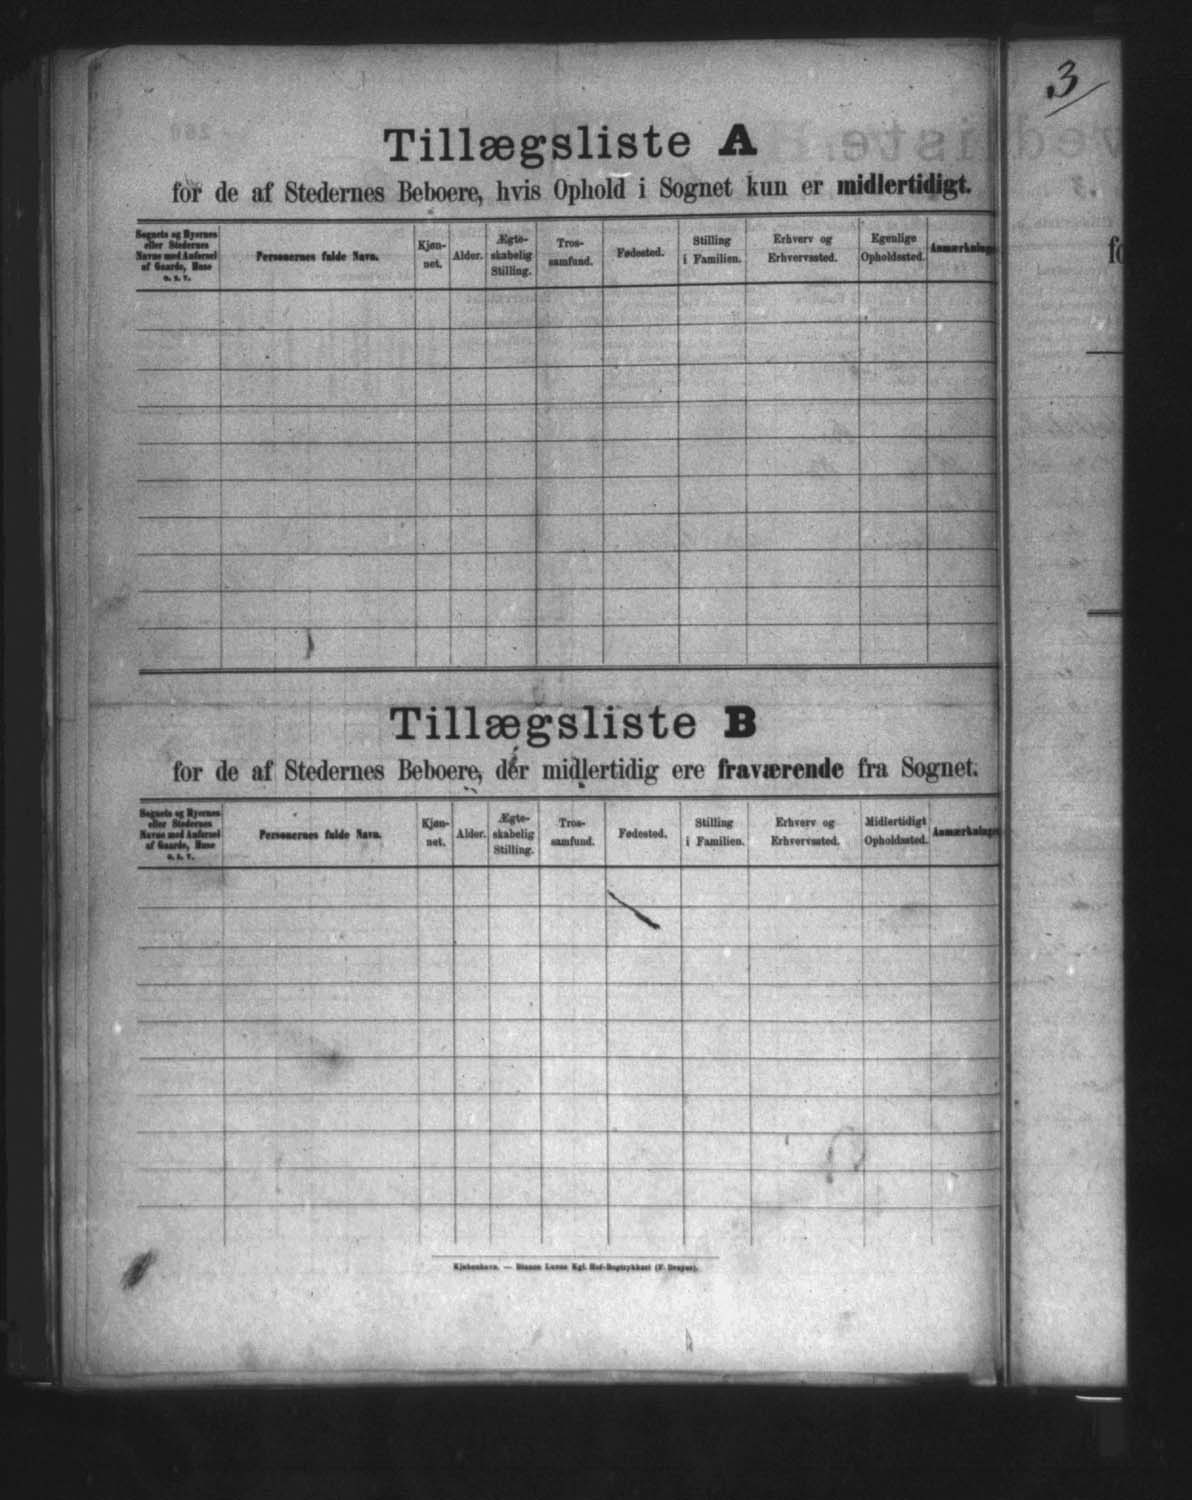 3
Tillægsliste A
for de af Stedernes Beboere, hvis Ophold i Sognet kun er midlertidigt.
Sognets og Byernes eller Stedernes Navne med Anførsel af Gaarde, Huse o. s. v.
Personernes fulde Navn.
Kjøn-
net.
Alder.
Ægte-
skabelig
Stilling.
Tros-
samfund.
Fødested.
Stilling
i Familien.
Erhverv og
Erhvervssted.
Egenlige
Opholdssted.
Anmærkninge
fo
Tillægsliste B
for de af Stedernes Beboere, der midlertidig ere fraværende fra Sognet.
Sognets og Byernes eller Stedernes Navne med Anførsel af Gaarde, Huse o. s. v.
Personernes fulde Navn.
Kjøn-
net.
Alder.
Ægte-
skabelig
Stilling.
Tros-
samfund.
Fødested.
Stilling
i Familien.
Erhverv og
Erhvervssted.
Midlertidigt
Opholdssted.
Anmærkninge
Kjøbenhavn. — Bianco Lunos Kgl. Hof-Bogtrykkeri (F. Dreyer).